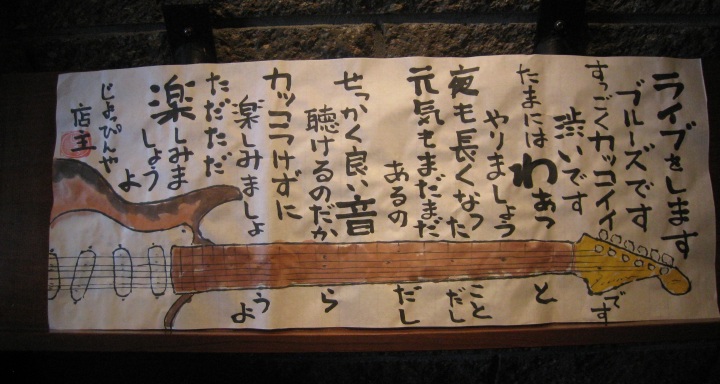 ライブをします
ブルーズです
すっごくカッコイイです
渋いです
たまにはわぁっと
やりましょう
夜も長くなったことだし
元気もまだまだだし
あるの
せっかく良い音
聴けるのだから
カッコつけずに
楽しみましょうよ
ただただ
楽しみま
しょうよ
じょっぴんや
店主